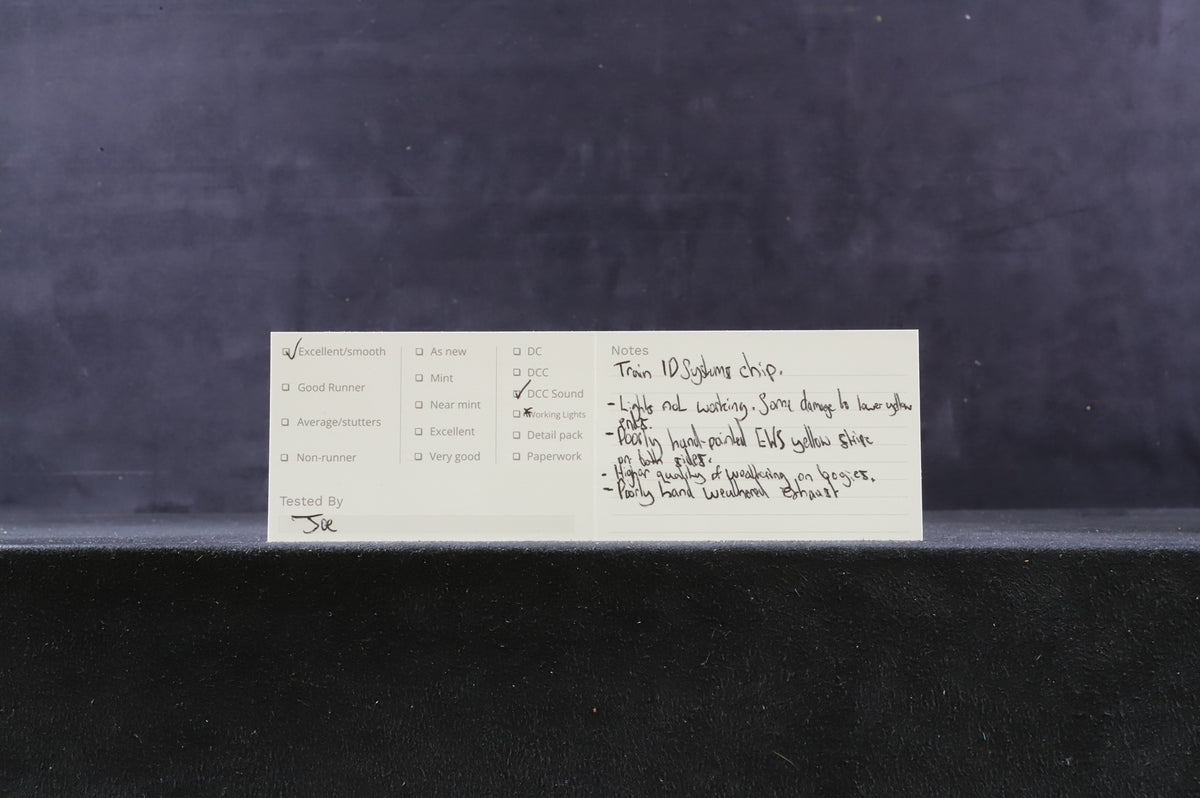 Excellent/smooth
Good Runner
Average/stutters
Non-runner
As new
Mint
Near mint
Excellent
Very good
DC
DCC
DCC Sound
Working Lights
Detail pack
Paperwork
Tested By
Joe
Notes
Train ID Systems chip.
- Lights not working. Some damage to lower yellow
ends.
- Poorly hand-painted EWS yellow stripe
on both sides.
- Higher quality of weathering on bogies.
- Poorly hand weathered exhaust